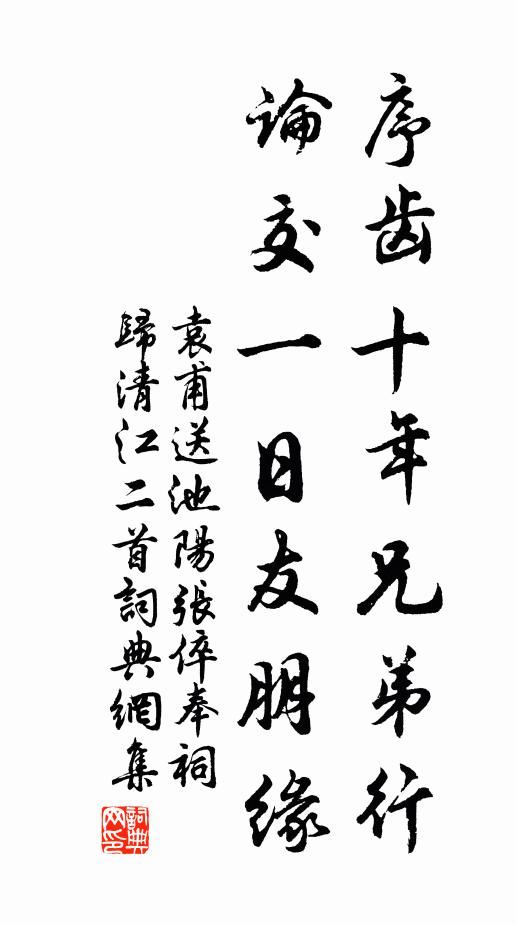 序齿十年兄弟行
論交一日友朋緣
袁甫送池陽張倅奉祠
歸清江二首詞典網集
詞典网印